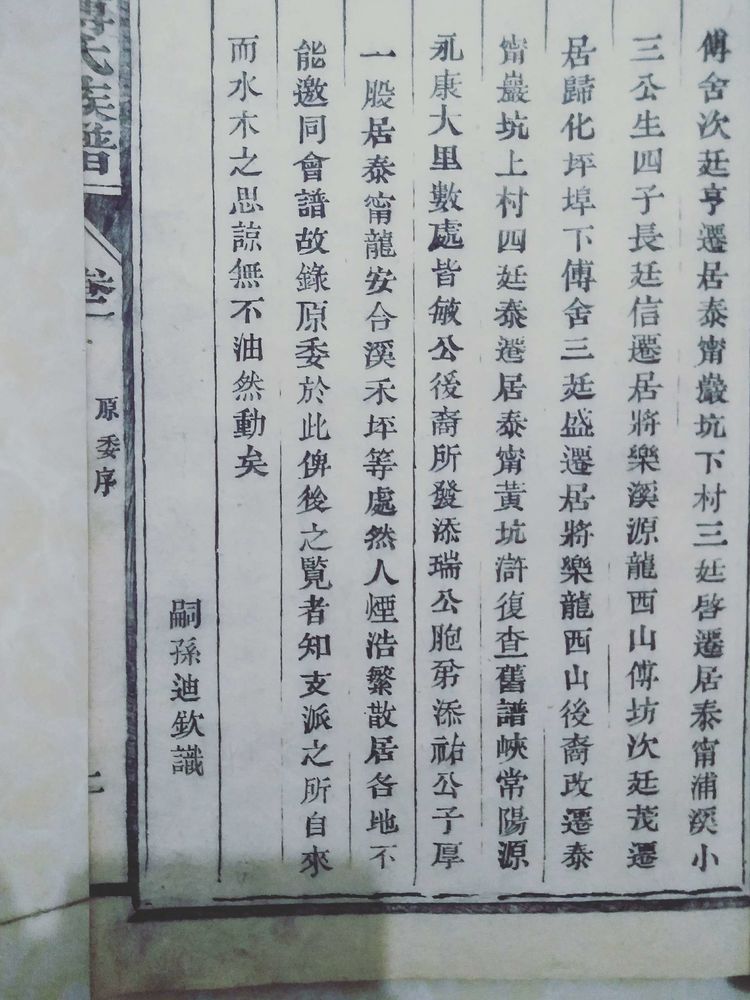 傅舍次廷亨遷居泰甯巖坑下村三廷啓遷居泰甯浦溪小
三公生四子長廷信遷居將樂溪源龍西山傅坊次廷茂遷
居歸化坪埠下傅舍三廷盛遷居將樂龍西山後裔改遷泰
甯巖坑上村四廷泰遷居泰甯黃坑滸復查舊譜峽常陽源
永康大里數處皆敏公後裔所發添瑞公胞弟添祐公子厚
一股居泰甯龍安合溪禾坪等處然人煙浩繁散居各地不
能邀同會譜故錄原委於此俾後之覽者知支派之所自來
而水木之思諒無不油然動矣
嗣孫迪欽識
氏族譜
卷二
原委序